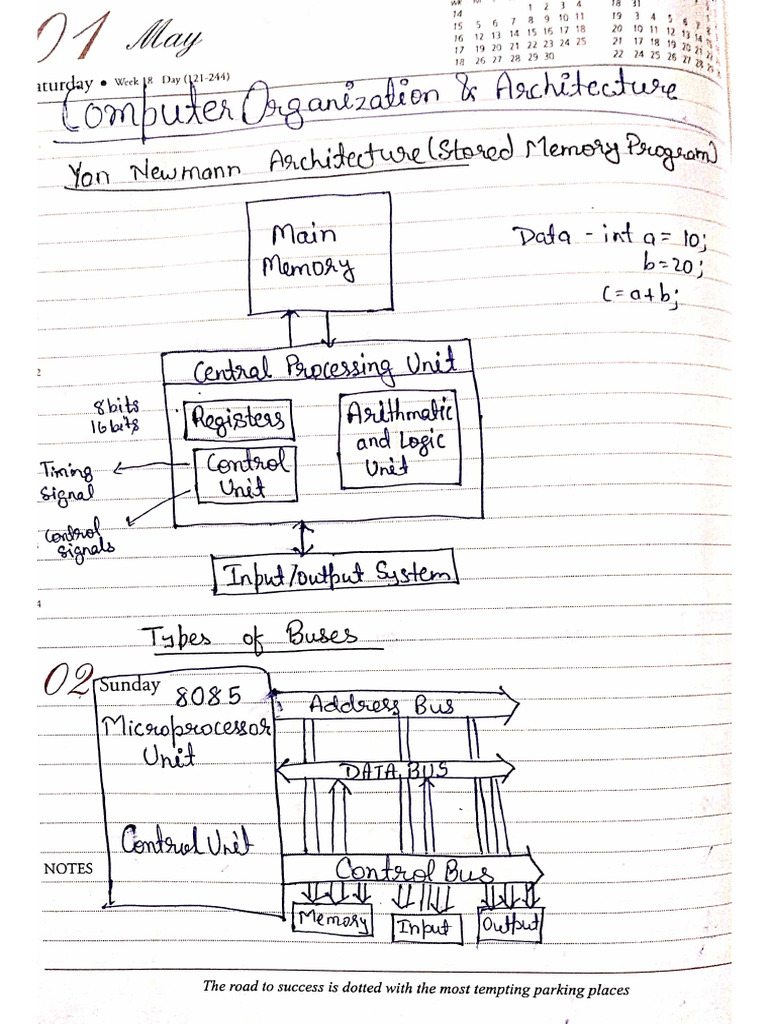 01 May
WK 14 1 2 3 4
15 5 6 7 8 9 10 11
16 12 13 14 15 16 17 18
17 19 20 21 22 23 24 25
18 26 27 28 29 30
18 31
19 3 4 5 6 7 8
20 10 11 12 13 14 15
21 17 18 19 20 21 22
22 24 25 26 27 28 29
aturday • Week 18 Day (121-244)
Computer Organization & Architecture
Von Newmann Architecture (Stored Memory Program)
Main
Memory
Data - int a = 10;
b=20;
c=a+b;
Central Processing Unit
8bits
16bits
Registers
Arithmatic
and Logic
Unit
Timing
Signal
Control
Unit
Control
Signals
Input/output System
Types of Buses
02 Sunday
8085
Microprocessor
Unit
Address Bus
DATA BUS
Control Unit
Control Bus
NOTES
Memory Input Output
The road to success is dotted with the most tempting parking places